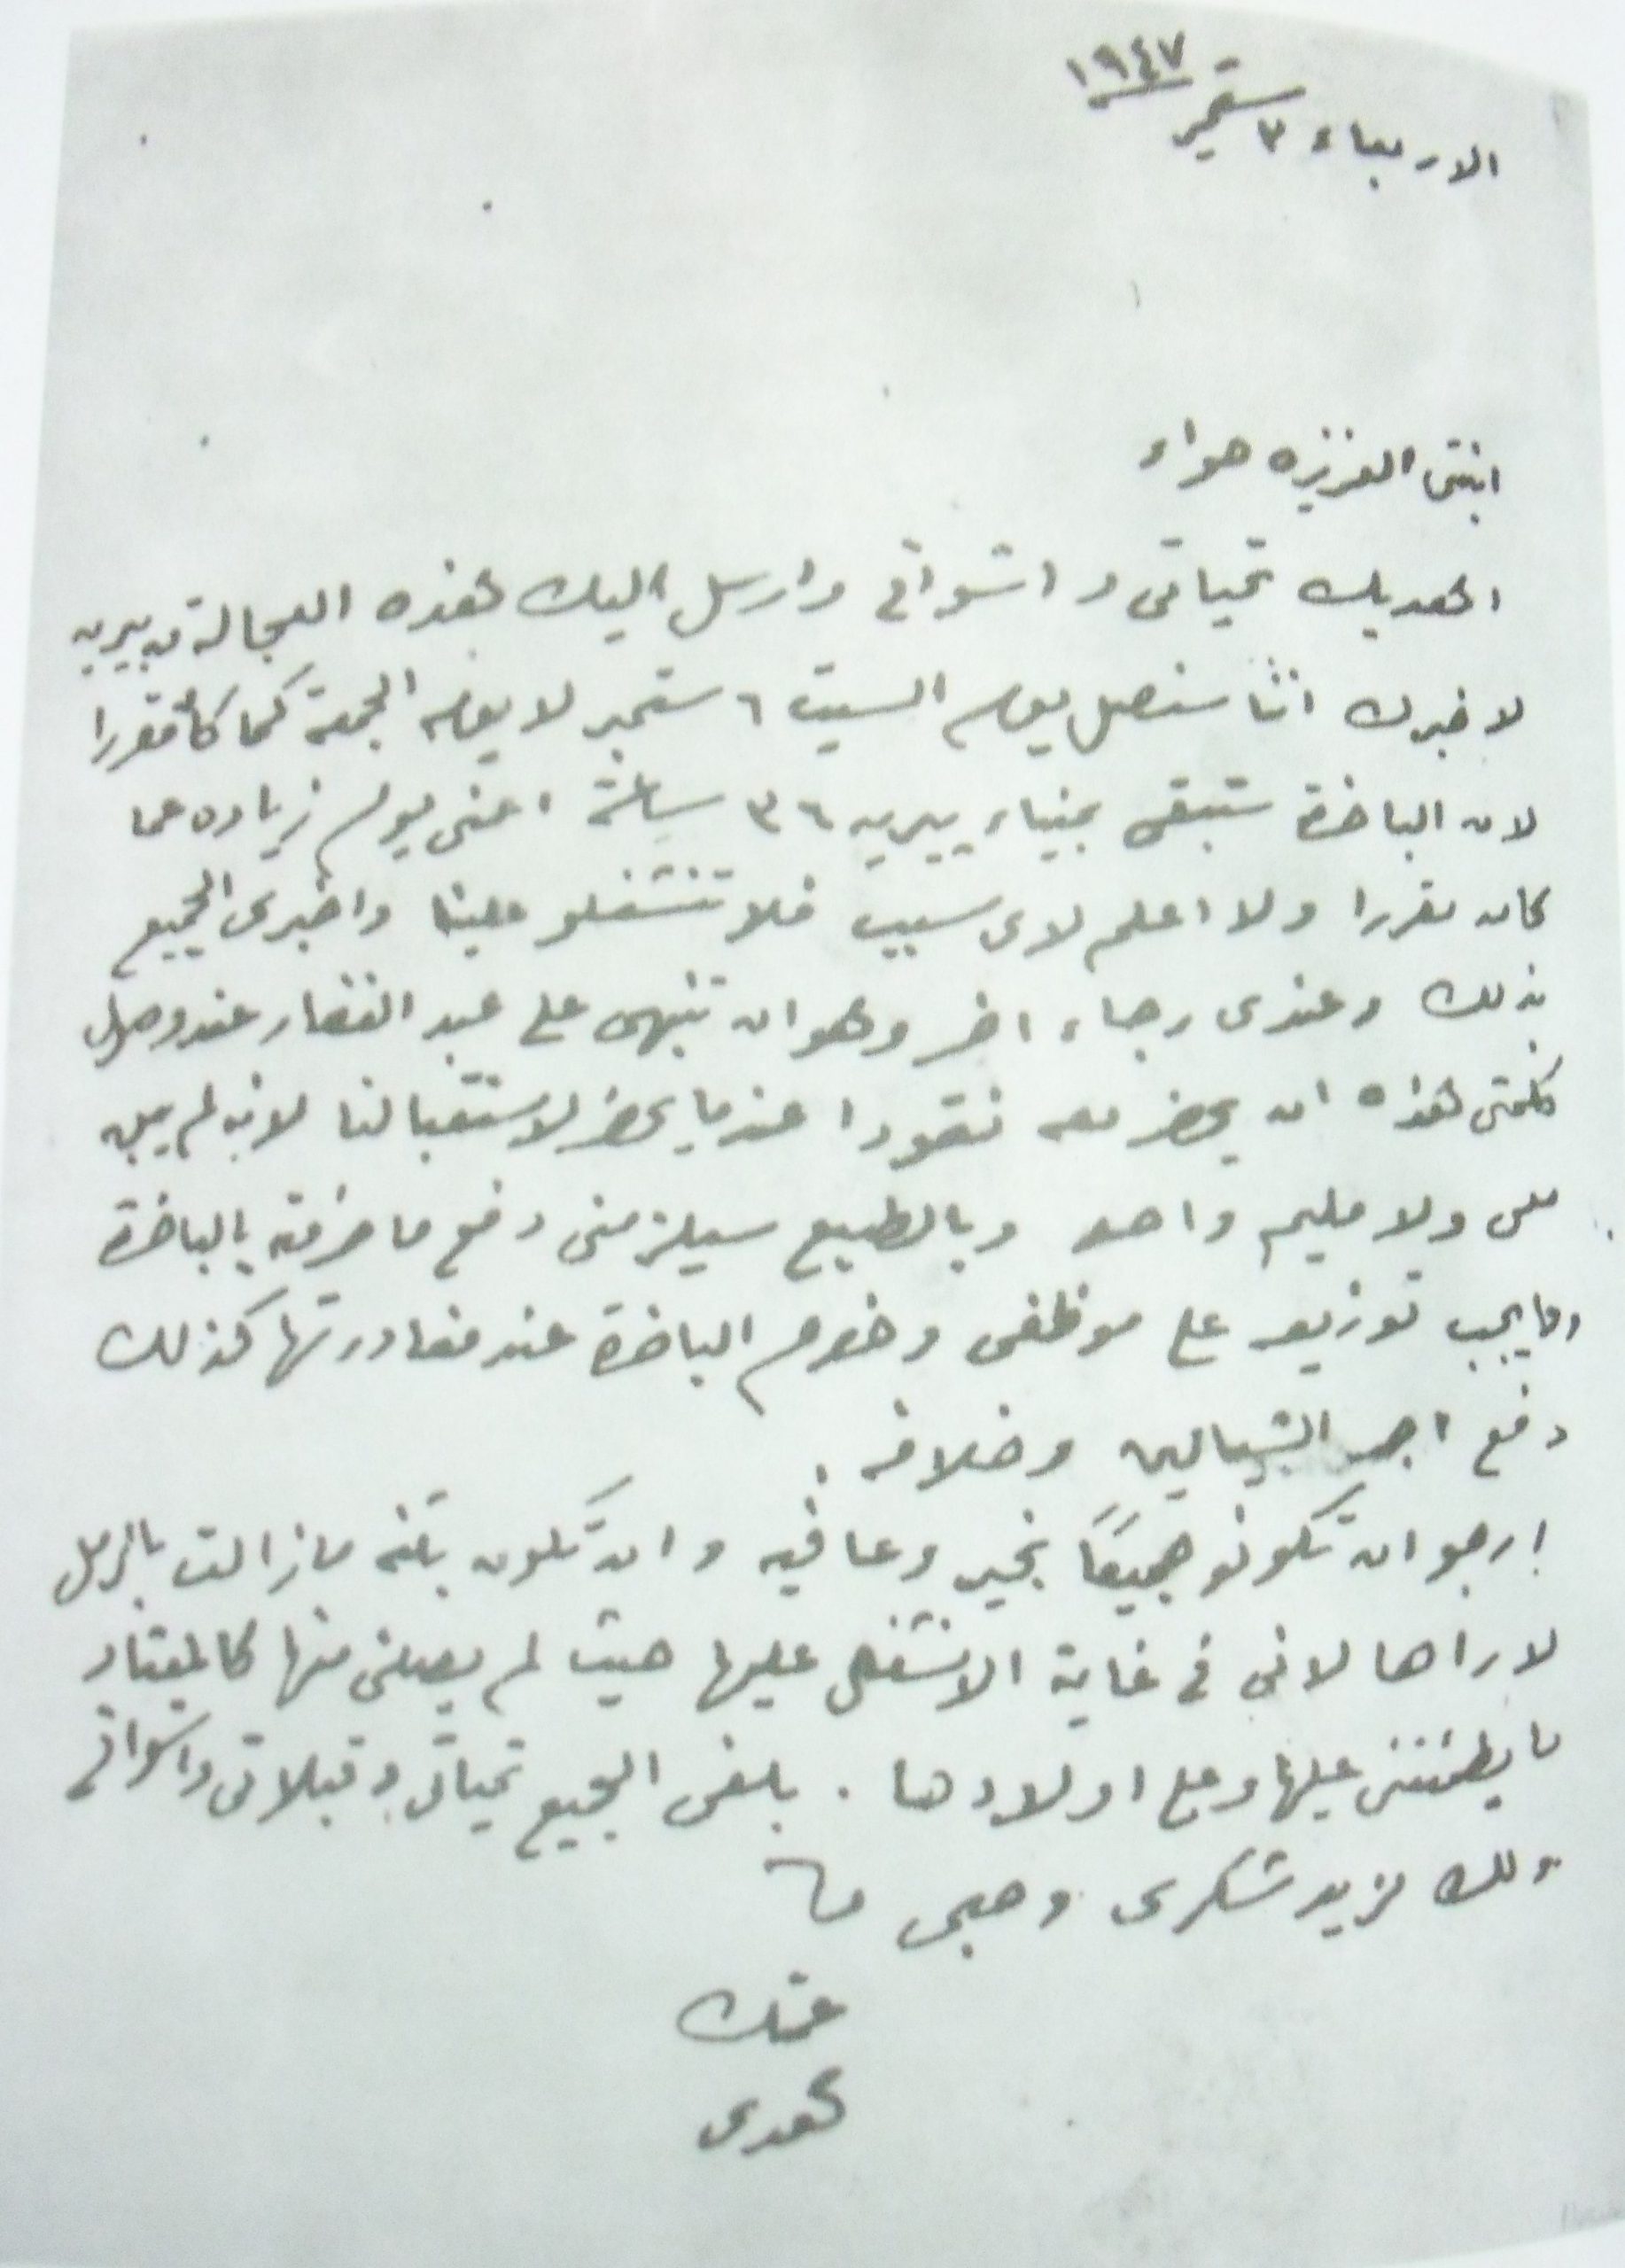 الاربعاء ٣ سبتمبر ١٩٤٧
ابنتى العزيزه حواء
اهديك تحياتى و اشواقى وارسل اليك هذه العجالة من بيريه
لاخبرك اننا سنصل يوم السبت ٦ سبتمبر لا يوم الجمعة كما كان مقررا
لان الباخرة ستبقى بميناء بيريه ٣٦ ساعة اعنى يوم زياده عما
كان مقررا ولا اعلم لاى سبب فلا تنشغلو علينا واخبرى الجميع
بذلك وعندى رجاء اخر وهو ان تنبهى على عبد الغفار عند وصول
كلمتى هذه ان يحضر معه نقودا عندما يحضر لاستقبالنا لانه لم يبق
معى ولا مليم واحد وبالطبع سيلزمنى دفع ما صرفته بالباخرة
وما يجب توزيعه على موظفى وخدم الباخرة عند مغادرتها كذلك
دفع اجر الشيالين وخلافه .
ارجو ان تكونو جميعًا بخير وعافيه وان تكون مازالت بالرمل
لاراها لانى فى غاية الانشغال عليها حيث لم يصلنى منها كالمعتاد
ما يطمئننى عليها وعلى اولادها . بلغى الجميع تحياتى وقبلاتى واشواقى
ولك مزيد شكرى وحبى
عمتك
هدى